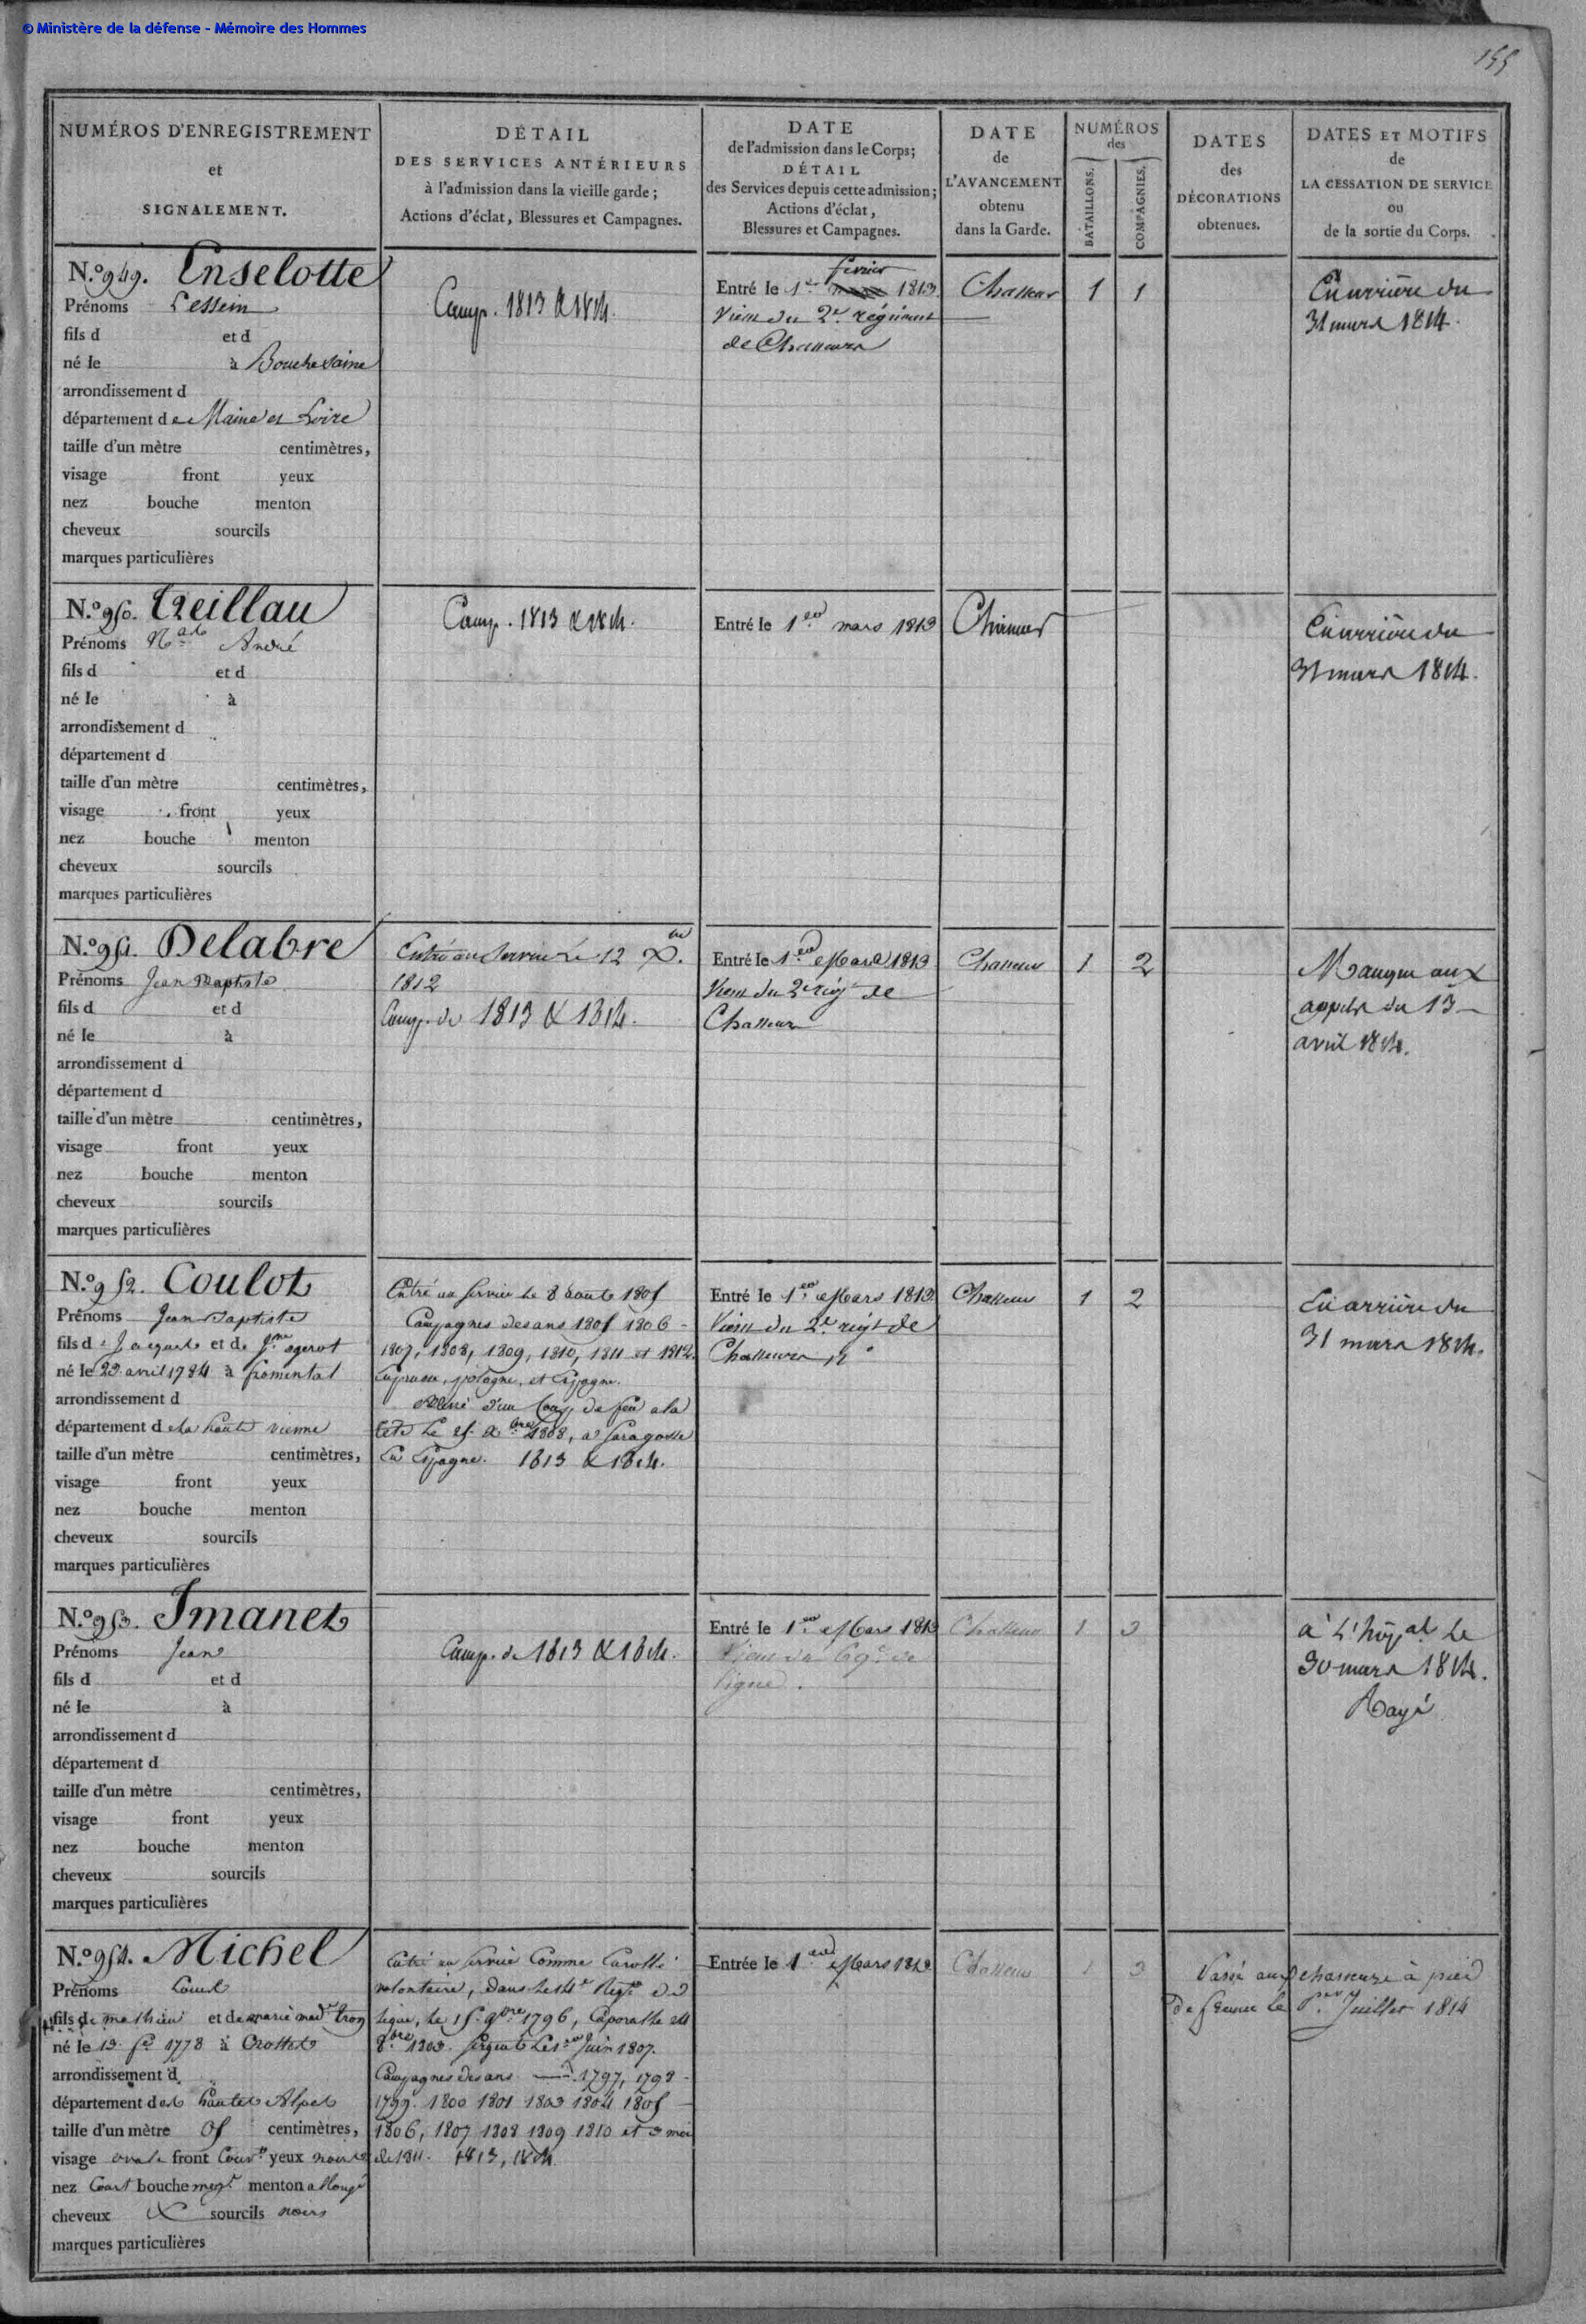 © Ministère de la défense - Mémoire des Hommes
155
NUMÉROS D'ENREGISTREMENT
et
SIGNALEMENT.
DÉTAIL
DES SERVICES ANTÉRIEURS
à l'admission dans la vieille garde;
Actions d'éclat, Blessures et Campagnes.
DATE
de l'admission dans le Corps;
DÉTAIL
des Services depuis cette admission;
Actions d'éclat,
Blessures et Campagnes.
DATE
de
L'AVANCEMENT
obtenu
dans la Garde.
NUMÉROS
des
BATAILLONS.
COMPAGNIES.
DATES
des
DÉCORATIONS
obtenues.
DATES ET MOTIFS
de
LA CESSATION DE SERVICE
ou
de la sortie du Corps.
N.º 949. Enselotte
Prénoms Lessein
fils d et d
né le à Bouchesaine
arrondissement d
département de Maine et Loire
taille d'un mètre centimètres,
visage front yeux
nez bouche menton
cheveux sourcils
marques particulières
Camp. 1813 & 1814.
fevrier
Entré le 1er mars 1813
Vient du 2e régiment
de Chasseurs
Chasseur
1
1
En arrière du
31 mars 1814.
N.º 950. Treillau
Prénoms André
fils d et d
né le à
arrondissement d
département d
taille d'un mètre centimètres,
visage front yeux
nez bouche menton
cheveux sourcils
marques particulières
Camp. 1813 & 1814.
Entré le 1er mars 1813
En arrière du
31 mars 1814.
N.º 951. Delabre
Prénoms Jean Baptiste
fils d et d
né le à
arrondissement d
département d
taille d'un mètre centimètres,
visage front yeux
nez bouche menton
cheveux sourcils
marques particulières
Entré au service le 12 Xbre
1812
Camp. de 1813 & 1814.
Entré le 1er Mars 1813
Vient du 2e régt de
Chasseurs
Chasseur
1
2
Manque aux
appels du 13
avril 1814.
N.º 952. Coulot
Prénoms Jean Baptiste
fils de Jacques et de
né le 23 avril 1784 à fromental
arrondissement d
département de la haute vienne
taille d'un mètre centimètres,
visage front yeux
nez bouche menton
cheveux sourcils
marques particulières
Entré au service le 8 aoute 1805
Campagnes des ans 1805 1806
1807, 1808, 1809, 1810, 1811 et 1812.
En prusse, pologne, et Espagne.
Blessé d'un Coup de feu a la
tête le 25 Xbre 1808, a Saragosse
En Espagne. 1813 & 1814.
Entré le 1er Mars 1813
Vient du 2e régt de
Chasseurs
Chasseur
1
2
En arrière du
31 mars 1814.
N.º 953. Imanet
Prénoms Jean
fils d et d
né le à
arrondissement d
département d
taille d'un mètre centimètres,
visage front yeux
nez bouche menton
cheveux sourcils
marques particulières
Camp. de 1813 & 1814.
Entré le 1er Mars 1813
Vient du 69e de
ligne.
Chasseur
1
3
à l'hôpal le
30 mars 1814.
Rayé
N.º 954. Michel
Prénoms Louis
fils de mathieu et de marie
né le 13 1778 à Crottes
arrondissement d
département des hautes Alpes
taille d'un mètre centimètres,
visage ovale front Couvt yeux noirs
nez Court bouche moyne menton allongé
cheveux & sourcils noirs
marques particulières
Entré au service Comme Enrollé
volontaire, dans le 14e Regt de
ligne, le 15 9bre 1796, Caporal le 24
8bre 1803. Sergent le 1er Juin 1807.
Campagnes des ans 1797, 1798
1799. 1800 1801 1803 1804 1805
1806, 1807 1808 1809 1810 et 3 mois
de 1811. 1813, 1814
Entrée le 1er Mars 1813
Chasseur
1
3
Passé aux chasseurs à pied
de france le 1er Juillet 1814